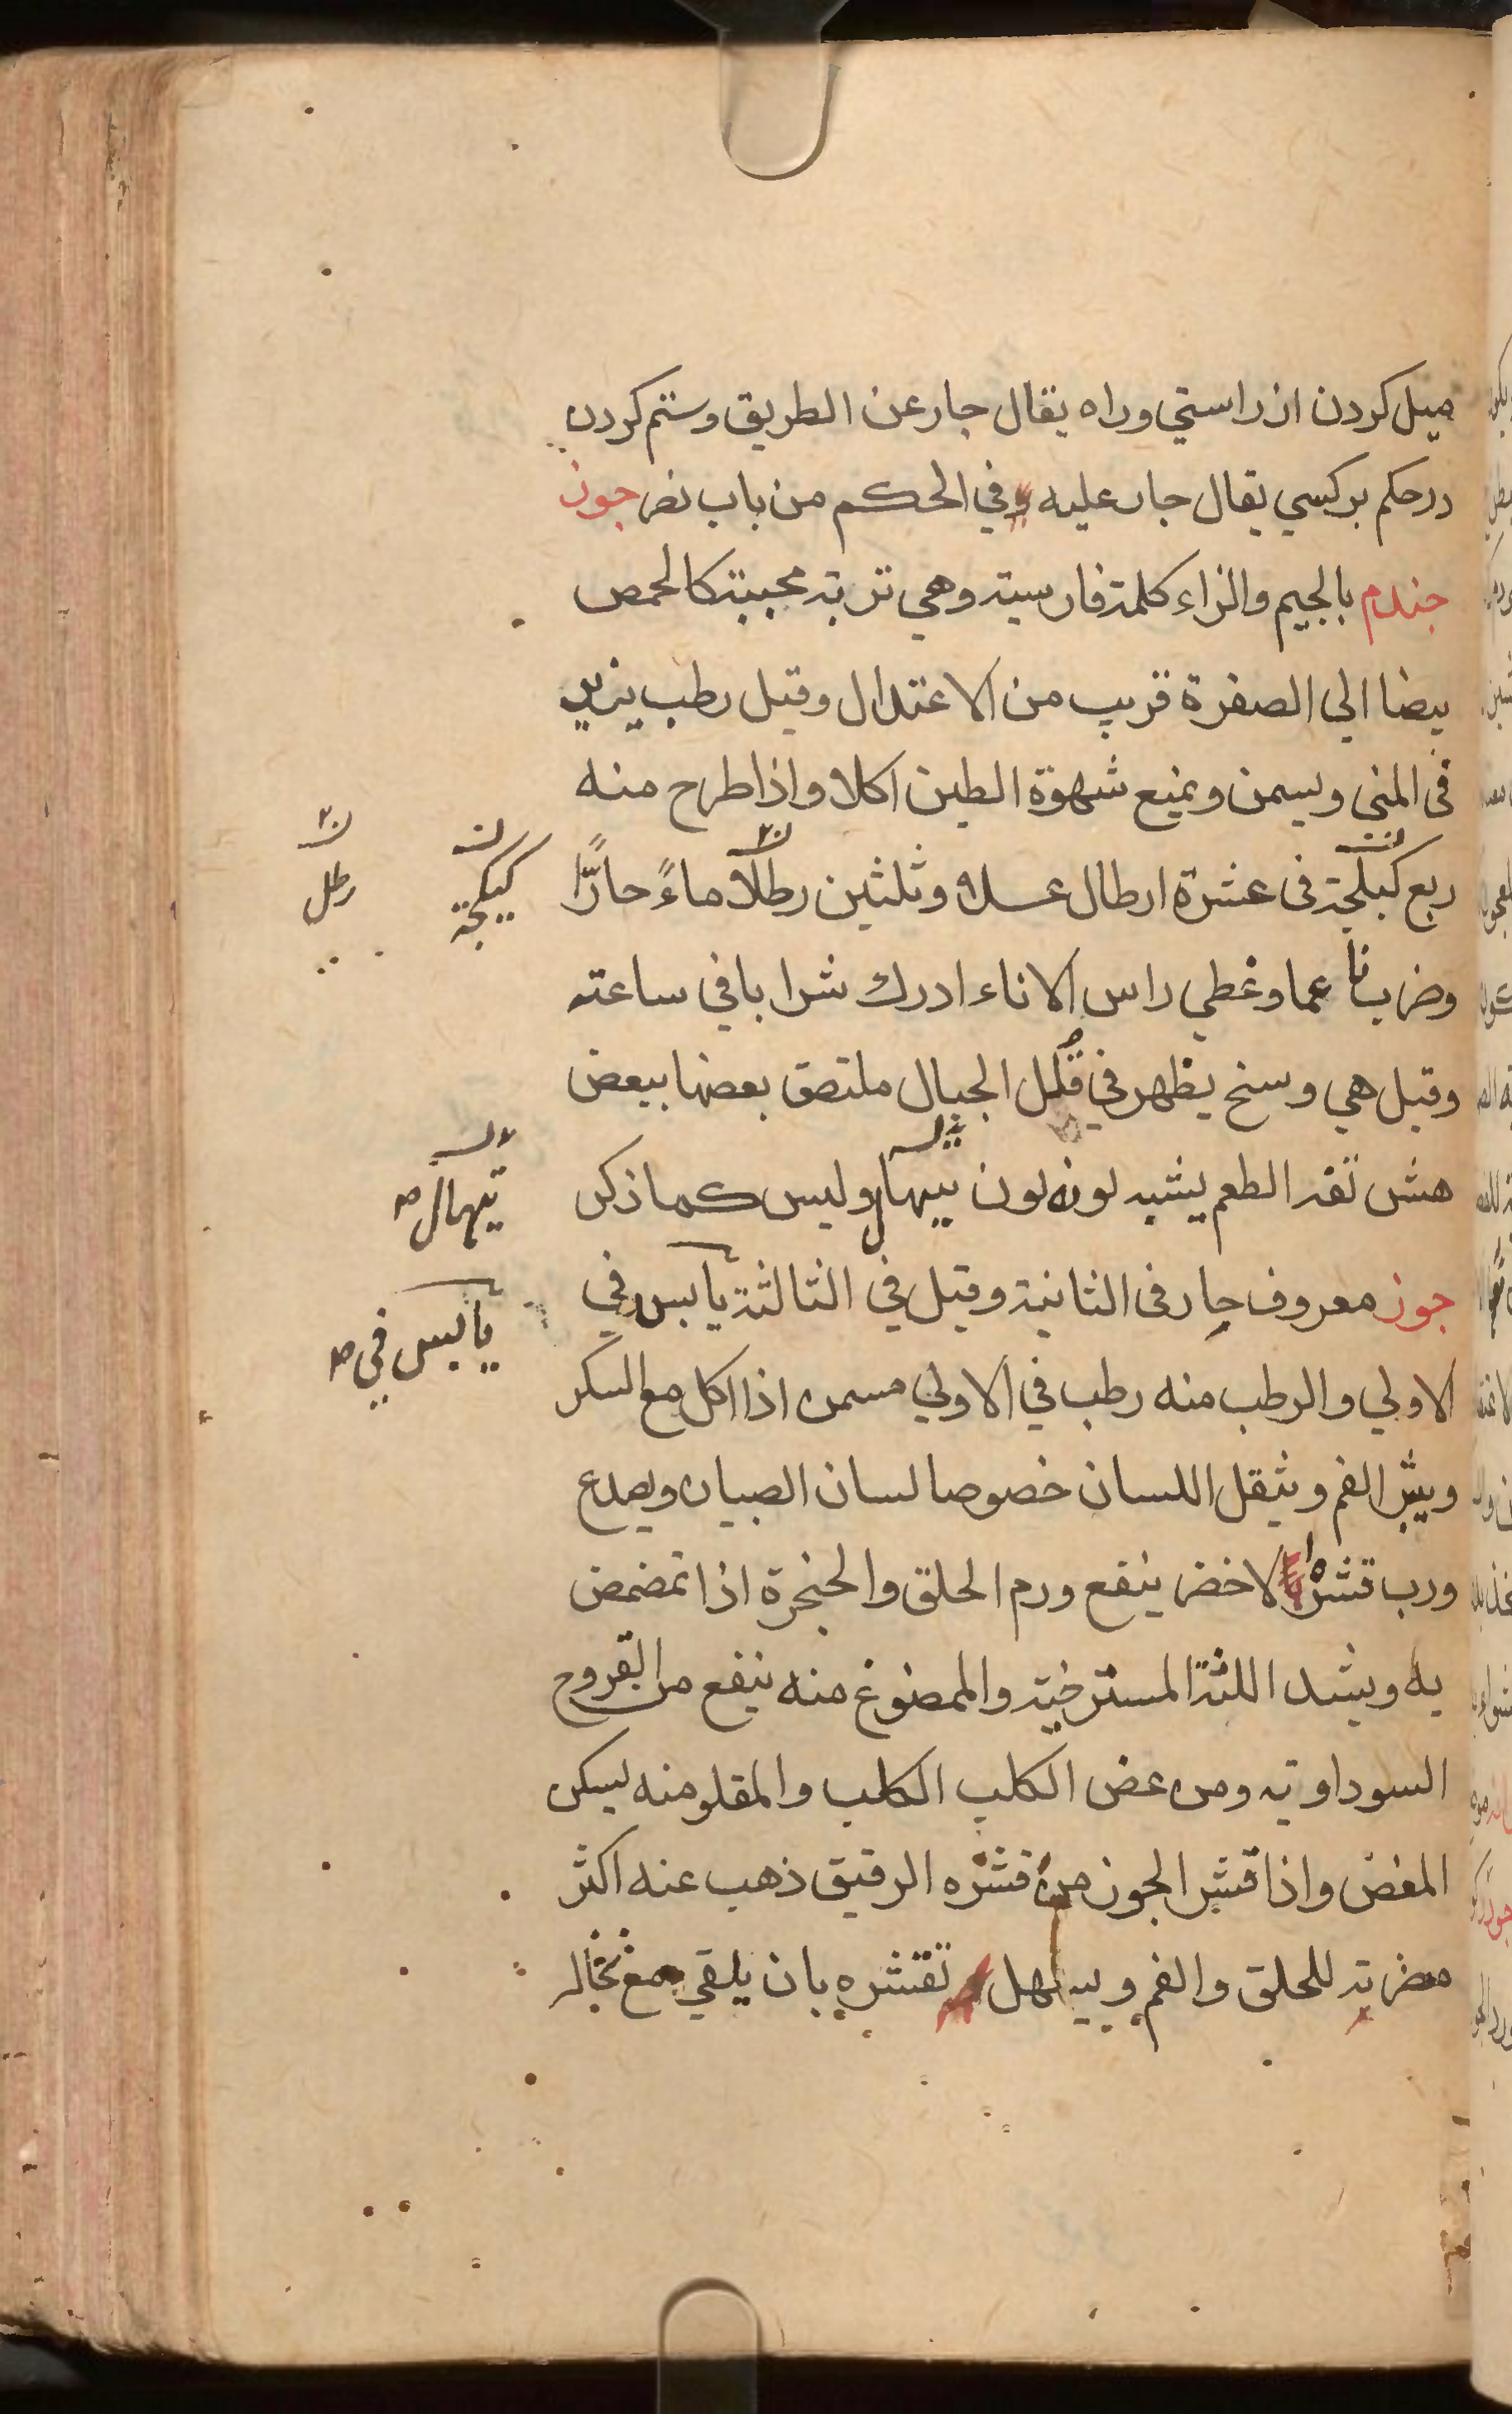 ميل كردن از راستي وراه يقال جار عن الطريق وستم كردن
درحكم بركسي يقال جار عليه في الحكم من باب نصر جوز
جندم بالجيم والزاء كلمة فارسية وهي تربة محببة كالحمص
بيضا الي الصفرة قريب من الاعتدال وقيل رطب يزيد
في المني ويسمن ويمنع شهوة الطين اكلا واذا طرح منه
ربع كيلجة في عشرة ارطال عسلا وثلثين رطلا ماءً حارًّا
وضرب ناعما وغطي راس الاناء ادرك شرابا في ساعته
وقيل هي وسخ يظهر في قلل الجبال ملتصق بعضها ببعض
هش تفه الطعم يشبه لونه لون وليس كما ذكر
جوز معروف حار في الثانية وقيل في الثالثة يابس في
الاولي والرطب منه رطب في الاولي مسمن اذا اكل مع السكر
ويبثر الفم ويثقل اللسان خصوصا لسان الصبيان ويصدع
ورب قشره الاخضر ينفع ورم الحلق والحنجرة اذا تمضمض
به ويشد اللثة المسترخية والممضوغ منه ينفع من القروح
السوداوية ومن عض الكلب الكلب والمقلو منه يسكن
المغض واذا قشر الجوز من قشره الرقيق ذهب عنه اكثر
مضرته للحلق والفم ويسهل تقشره بان يلقي مع نخاله
كيلجة
رطل
يابس في صح